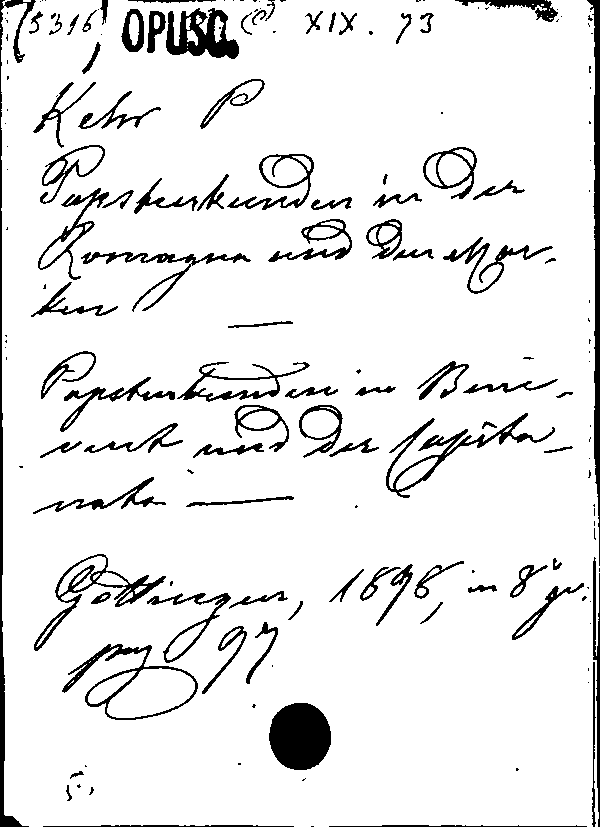 (5316) OPUSC. C. XIX. 73
Kehr P
Papsturkunden in der
Romagna und den Mar-
ken —
Papsturkunden in Bene-
vent und der Capita-
nata —
Göttingen, 1898, in 8° gr.
pag 97
5.